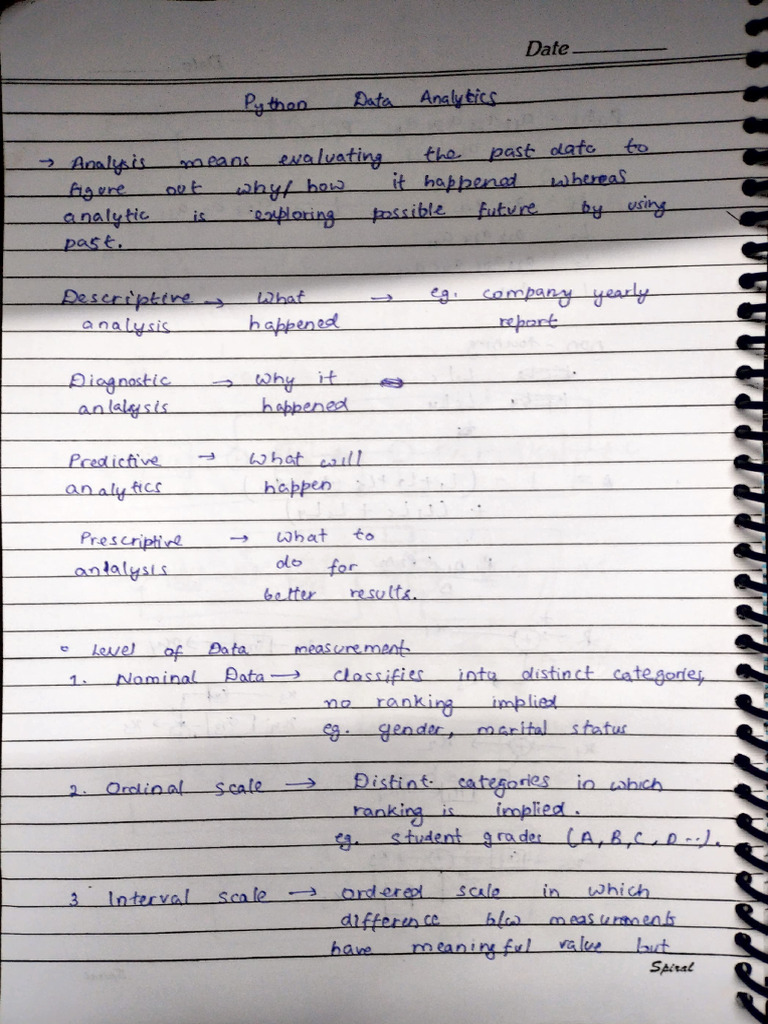 Date
Python Data Analytics
→ Analysis means evaluating the past data to
figure out why/how it happened whereas
analytic is exploring possible future by using
past.
Descriptive → What → eg. company yearly
analysis happened report
Diagnostic → Why it
anlalysis happened
Predictive → What will
analytics happen
Prescriptive → What to
anlalysis do for
better results.
◦ Level of Data measurement
1. Nominal Data → classifies into distinct categories,
no ranking implied
eg. gender, marital status
2. Ordinal scale → Distint categories in which
ranking is implied.
eg. student grades (A, B, C, D ...).
3 Interval scale → ordered scale in which
difference b/w measurments
have meaningful value but
Spiral